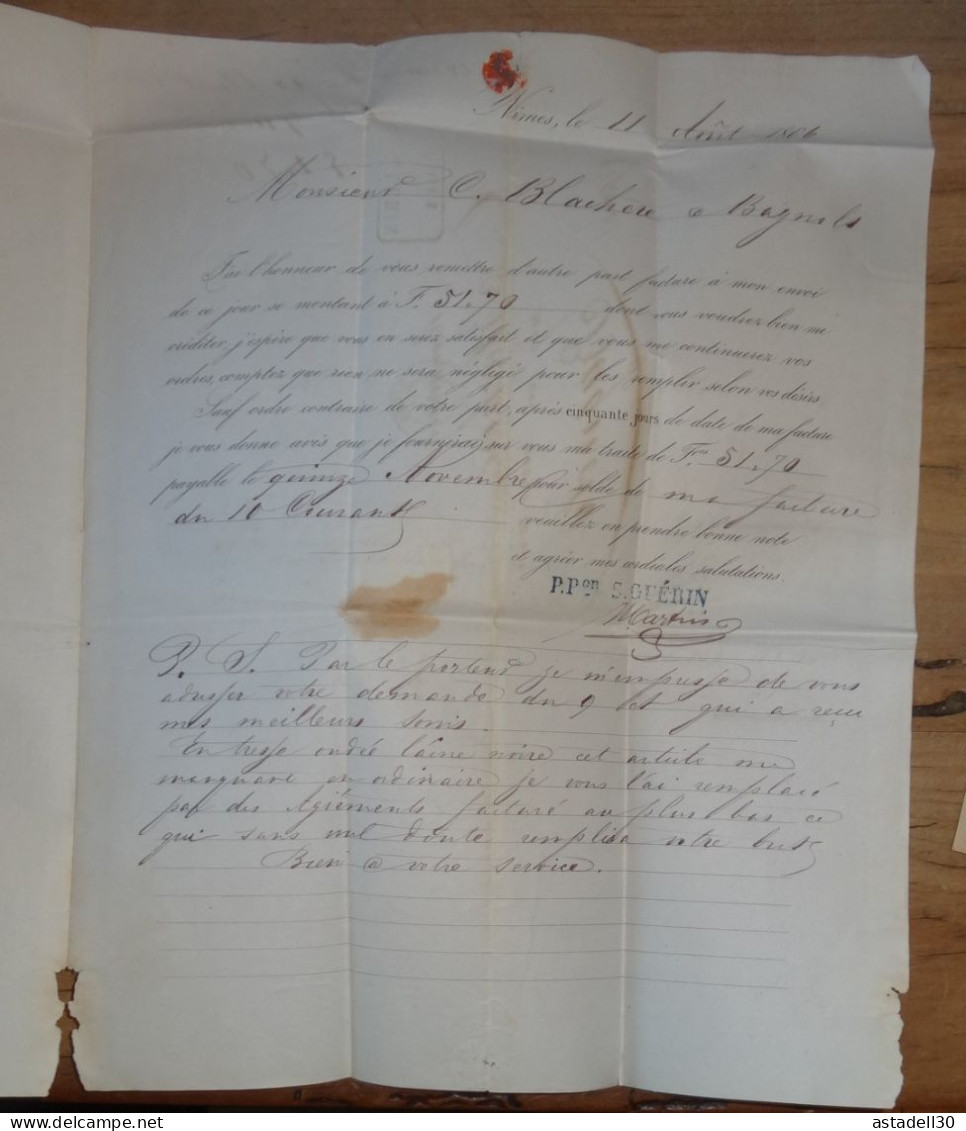 Nîmes, le 11 Août 18
Monsieur C. Blachère a Bagnols
J'ai l'honneur de vous remettre d'autre part facture à mon envoi
de ce jour se montant à F. 51.70 dont vous voudrez bien me
créditer, j'espère que vous en serez satisfait et que vous me continuerez vos
ordres, comptez que rien ne sera négligé pour les remplir selon vos désirs.
Sauf ordre contraire de votre part, après cinquante jours de date de ma facture
je vous donne avis que je fournirai sur vous ma traite de Frs 51.70
payable le quinze Novembre pour solde de ma facture
du 10 Courant veuillez en prendre bonne note
et agréer mes cordiales salutations.
P.Pon S. GUÉRIN
Martin
P. S. Par le porteur je m'empresse de vous
adresser votre demande du 9 ct qui a reçu
mes meilleurs soins.
En tresse ondée laine noire cet article me
manquant en ordinaire je vous l'ai remplacé
par des Agréments facturé au plus bas ce
qui sans nul doute remplira votre but
Bien a votre service.
astadell30